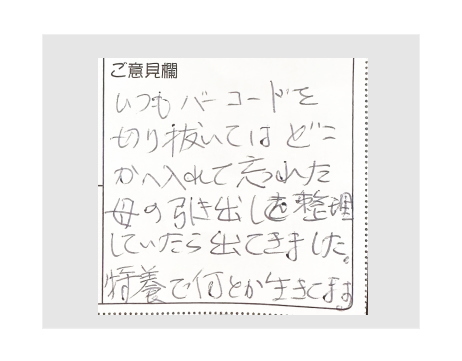 ご意見欄
いつもバーコードを
切り抜いてはどこ
かへ入れて忘れた
母の引き出しを整理
していたら出てきました。
特養で何とか生きてます